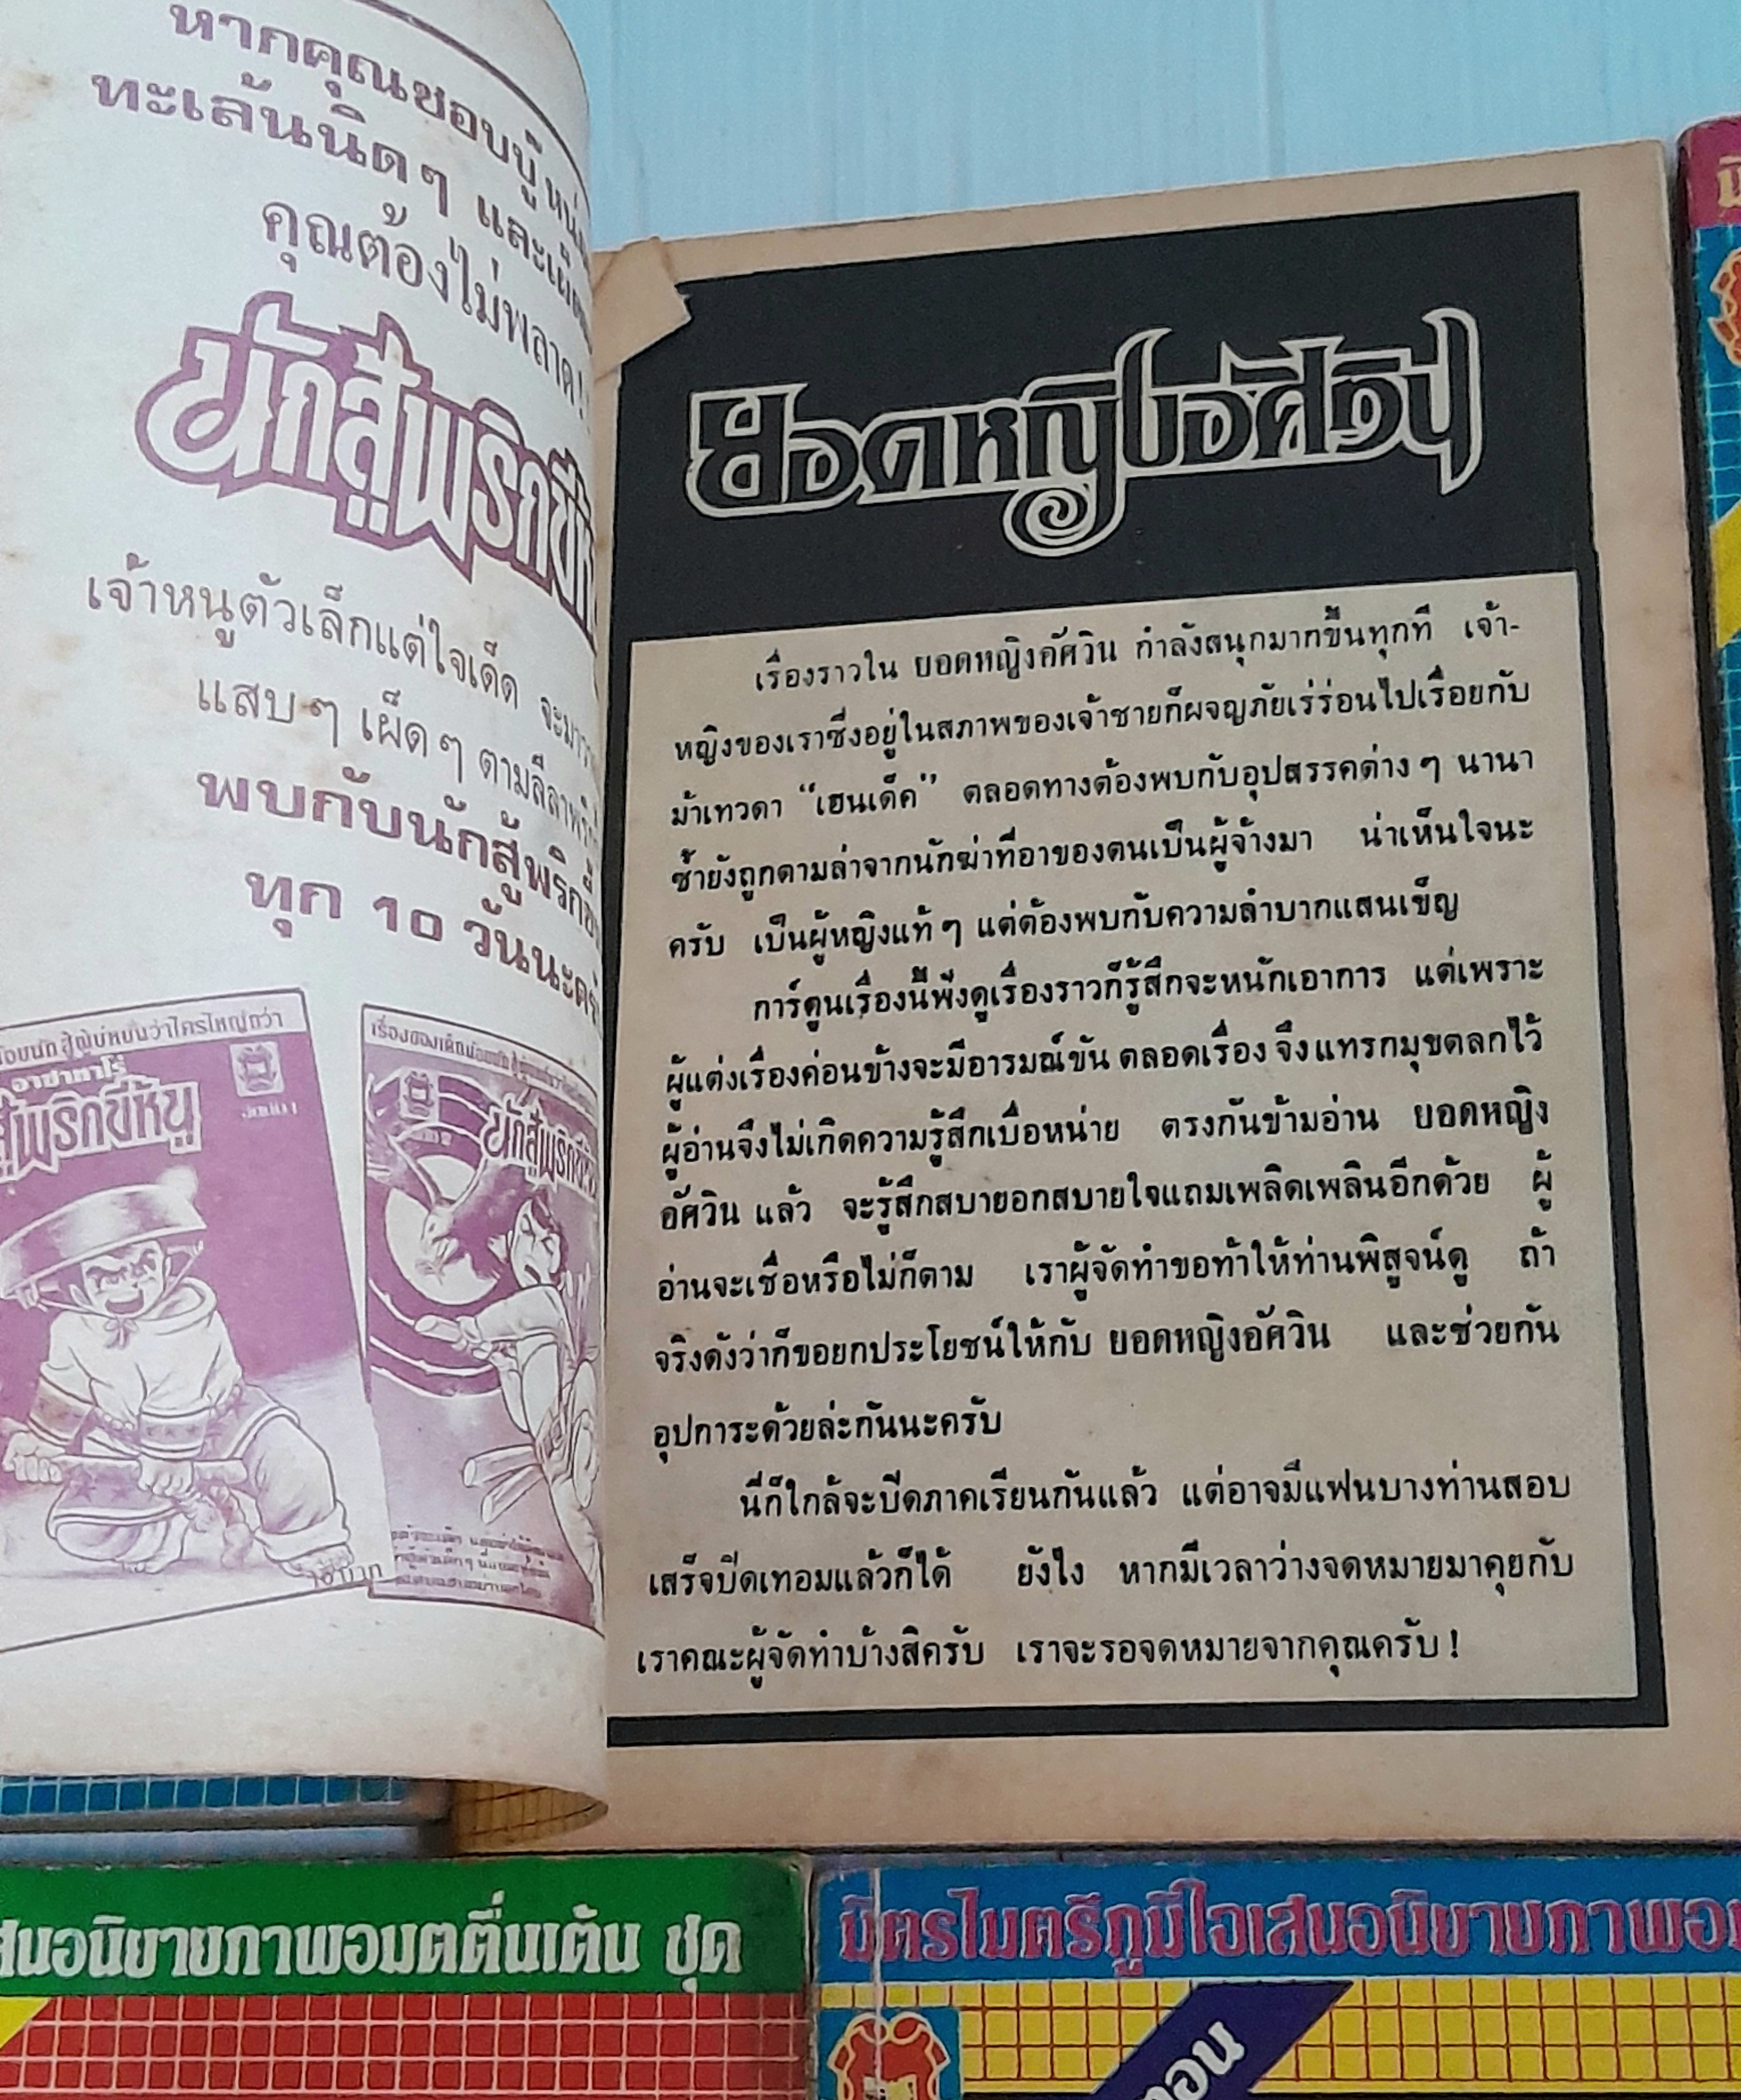 หากคุณชอบบู๊
ทะเล้นนิดๆ
คุณต้องไม่พลาด!
นักสู้พริกขี้
เจ้าหนูตัวเล็กแต่ใจเด็ด
แสบๆ เผ็ดๆ
พบกับนักสู้พริกขี้
ทุก 10 วันนะครับ
อาซาทาโร่
สู้พริกขี้หนู
นักสู้พริกขี้
ยอดหญิงอัศวิน
เรื่องราวใน ยอดหญิงอัศวิน กำลังสนุกมากขึ้นทุกที เจ้า-
หญิงของเราซึ่งอยู่ในสภาพของเจ้าชายก็ผจญภัยเร่ร่อนไปเรื่อยกับ
ม้าเทวดา "เฮนเด็ค" ตลอดทางต้องพบกับอุปสรรคต่างๆ นานา
ซ้ำยังถูกตามล่าจากนักฆ่าที่อาของตนเป็นผู้จ้างมา น่าเห็นใจนะ
ครับ เป็นผู้หญิงแท้ๆ แต่ต้องพบกับความลำบากแสนเข็ญ
การ์ตูนเรื่องนี้ฟังดูเรื่องราวก็รู้สึกจะหนักเอาการ แต่เพราะ
ผู้แต่งเรื่องค่อนข้างจะมีอารมณ์ขัน ตลอดเรื่อง จึงแทรกมุขตลกไว้
ผู้อ่านจึงไม่เกิดความรู้สึกเบื่อหน่าย ตรงกันข้ามอ่าน ยอดหญิง
อัศวิน แล้ว จะรู้สึกสบายอกสบายใจแถมเพลิดเพลินอีกด้วย ผู้
อ่านจะเชื่อหรือไม่ก็ตาม เราผู้จัดทำขอท้าให้ท่านพิสูจน์ดู ถ้า
จริงดังว่าก็ขอยกประโยชน์ให้กับ ยอดหญิงอัศวิน และช่วยกัน
อุปการะด้วยล่ะกันนะครับ
นี่ก็ใกล้จะปิดภาคเรียนกันแล้ว แต่อาจมีแฟนบางท่านสอบ
เสร็จปิดเทอมแล้วก็ได้ ยังไง หากมีเวลาว่างจดหมายมาคุยกับ
เราคณะผู้จัดทำบ้างสิครับ เราจะรอจดหมายจากคุณครับ!
สนอนิยายภาพอมตตื่นเต้น ชุด
มิตรไมตรีภูมิใจเสนอนิยายภาพอม
ตอน